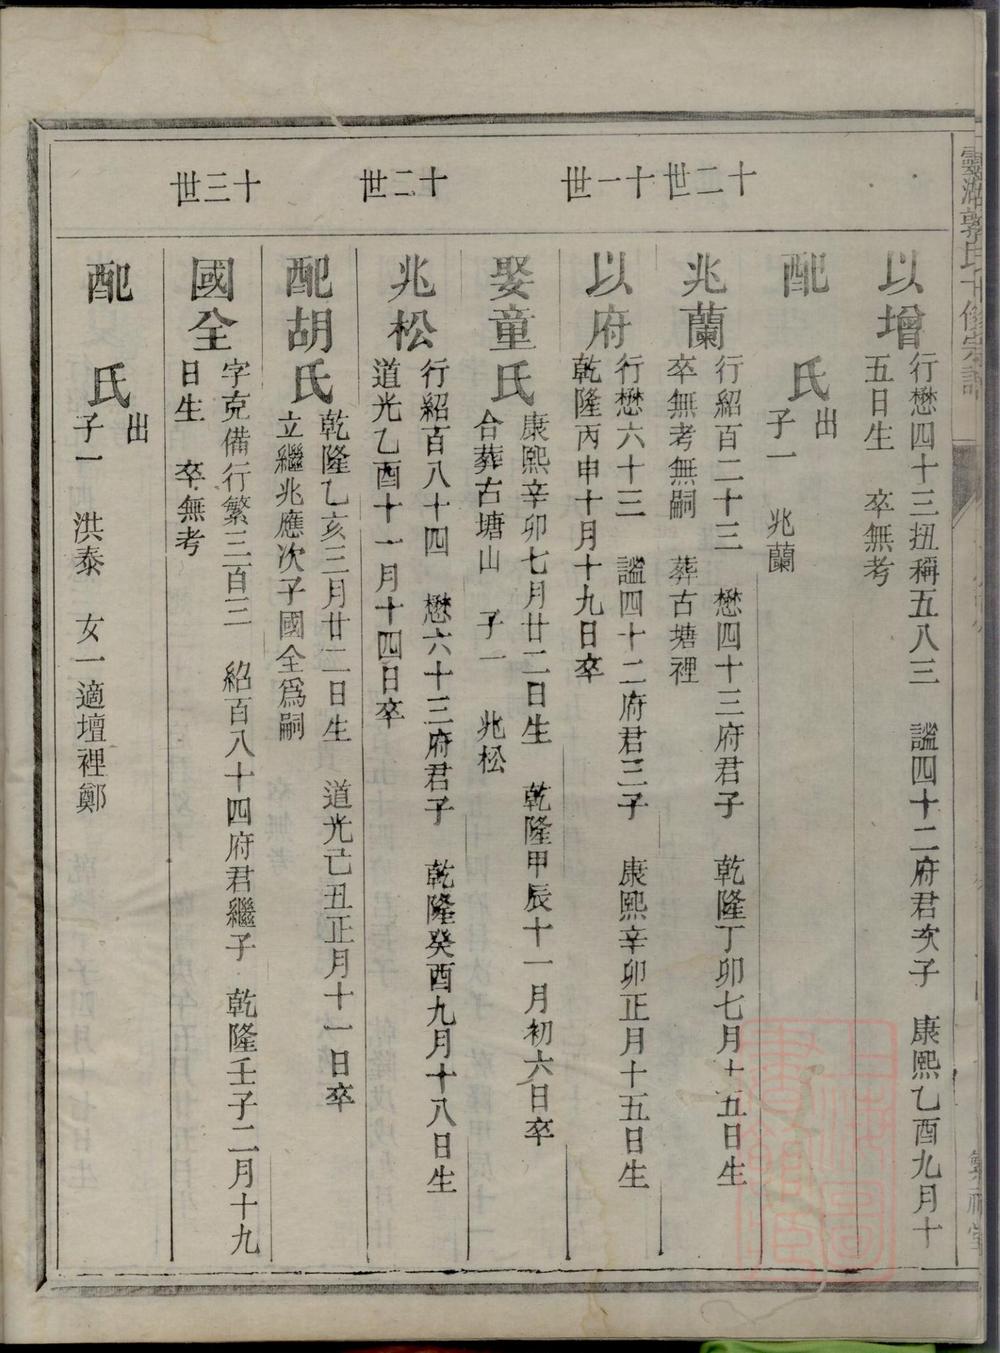 十二世
十一世
十二世
十三世
以增
行懋四十三扭稱五八三　謐四十二府君次子　康熙乙酉九月十
五日生　卒無考
配　氏
出
子一　兆蘭
兆蘭
行紹百二十三　懋四十三府君子　乾隆丁卯七月十五日生
卒無考無嗣　葬古塘裡
以府
行懋六十三　謐四十二府君三子　康熙辛卯正月十五日生
乾隆丙申十月十九日卒
娶童氏
康熙辛卯七月廿二日生　乾隆甲辰十一月初六日卒
合葬古塘山　子一　兆松
兆松
行紹百八十四　懋六十三府君子　乾隆癸酉九月十八日生
道光乙酉十一月十四日卒
配胡氏
乾隆乙亥三月廿二日生　道光己丑正月十一日卒
立繼兆應次子國全爲嗣
國全
字克備行繁三百三　紹百八十四府君繼子　乾隆壬子二月十九
日生　卒無考
配　氏
出
子一　洪泰　女一適壇裡鄭